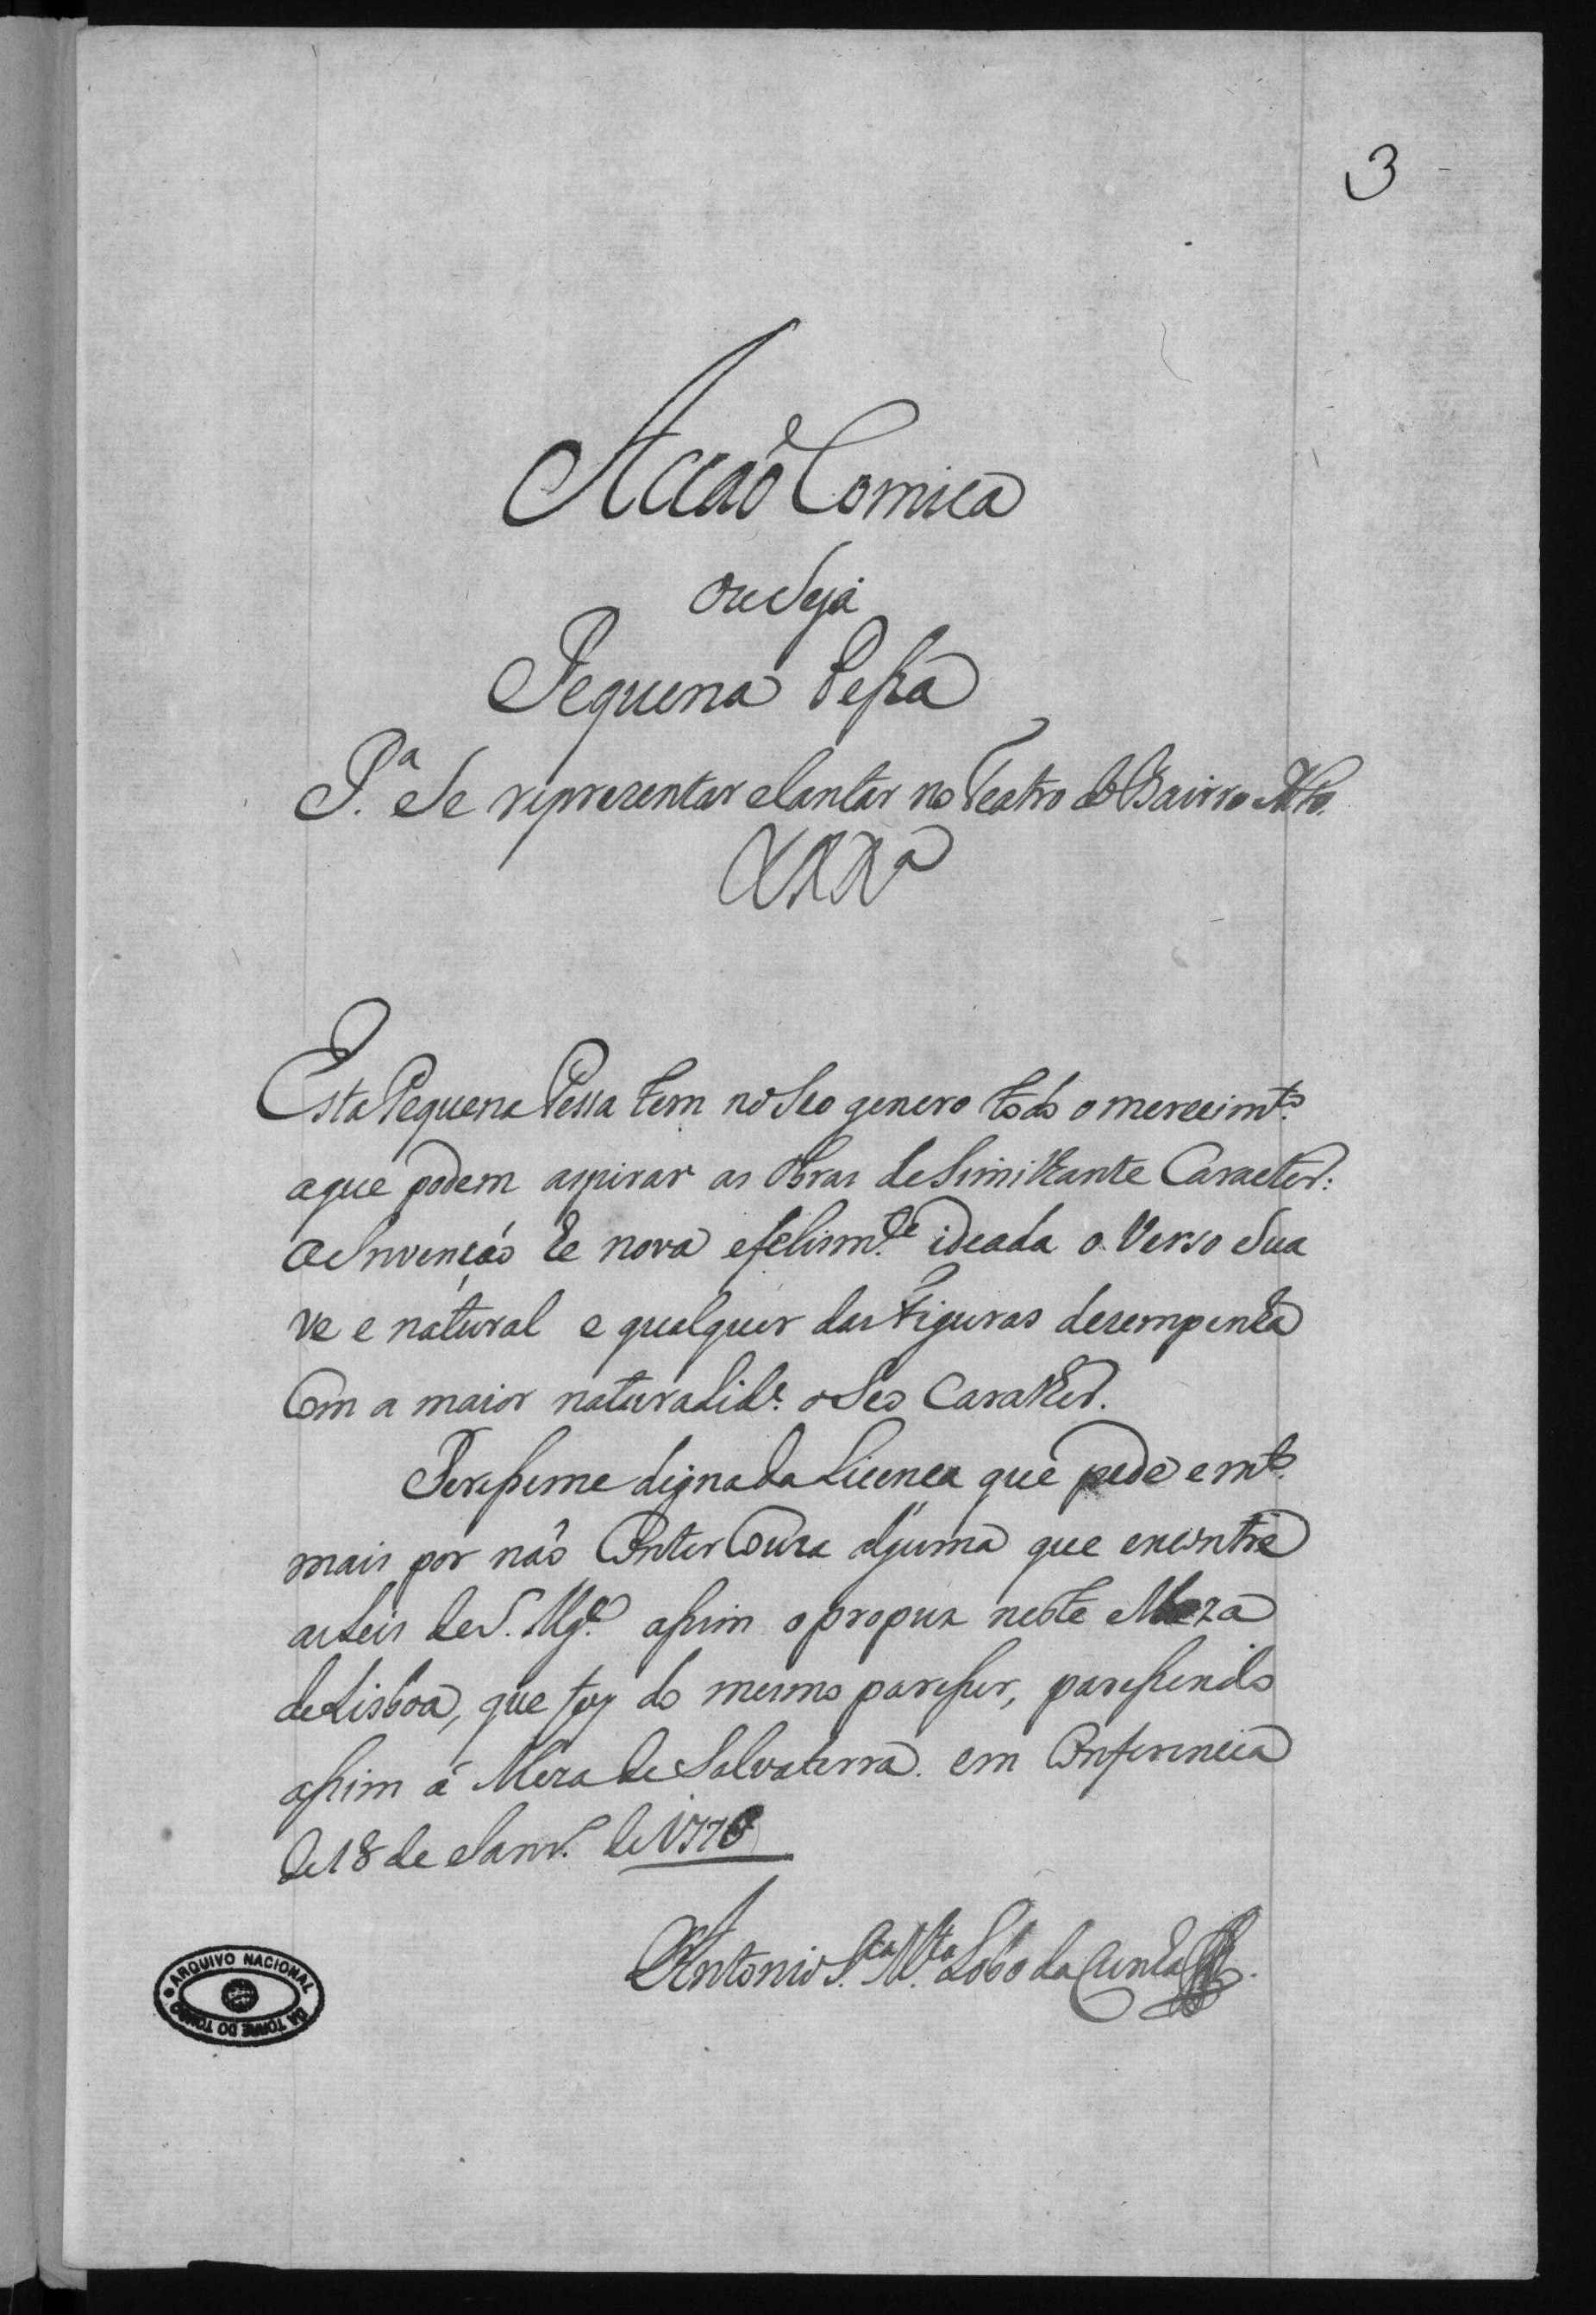 3
Acçaõ Comica
ou Seja
Pequena Pessa
P.ª Se reprezentar e Cantar no Teatro do Bairro Alto.
Esta Pequena Pessa tem no Seo genero todo o merecimt.º
aque podem aspirar as Obras de Similhante Caracter:
a Invençaõ he nova e felismt.e ideada o Verso Sua
ve e natural e qualquer das Figuras desempenha
Com a maior naturalid.e o Seo Carakter.
Paresseme digna da Licença que pede e mt.º
mais por naõ Conter Couza alguma que encontre
as Leis de S. Mg.e assim o propuz neste Meza
de Lisboa, que foy do mesmo paresser, paressendo
assim á Meza de Salvaterra em Conferencia
de 18 de Janr.º de 1770
Antonio S.ta M.ta Lobo da Cunha
ARQUIVO NACIONAL DA TORRE DO TOMBO